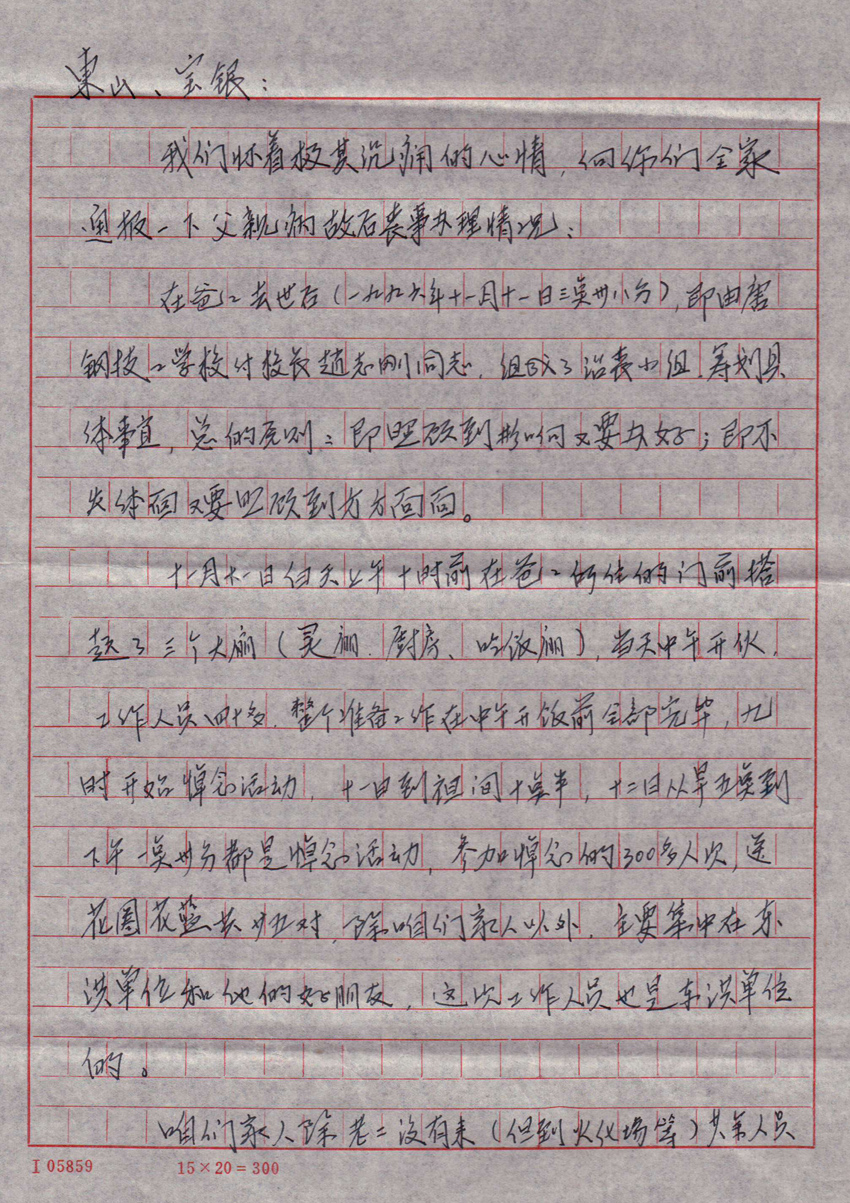 東山、宝银：
我们怀着极其沉痛的心情，向你们全家
通报一下父亲病故后丧事办理情况：
在爸爸去世后（一九九六年十一月十一日三点卅八分），即由唐
钢技工学校付校长趙志刚同志，组成了治丧小组，筹划具
体事宜，总的原则：即照顾到影响又要办好；即不
失体面又要照顾到方方面面。
十一月十一日白天上午十时前在爸爸所住的门前搭
起了三个大廂（灵廂、厨房、吃饭廂），当天中午开伙，
工作人员四十多，整个准备工作在中午开饭前全部完毕，九
时开始悼念活动，十一日到夜间十点半，十二日从早五点到
下午一点卅分都是悼念活动，参加悼念的300多人次，送
花圈花篮共廿五对，除咱们家人以外，主要集中在东
洪单位和他的好朋友，这次工作人员也是东洪单位
的。
咱们家人除老二没有来（但到火化場等）其余人员
I 05859
15×20=300